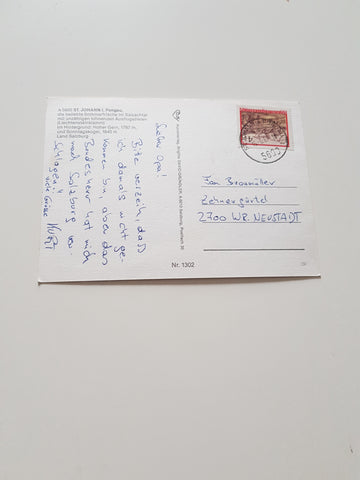 A 5600 ST. JOHANN i. Pongau,
die beliebte Sommerfrische im Salzachtal
mit unzähligen lohnenden Ausflugszielen
(Liechtensteinklamm)
Im Hintergrund: Hoher Gern, 1787 m,
und Sonntagskogel, 1849 m
Land Salzburg
Lieber Opa!
Bitte verzeih, daß
ich damals nicht ge-
kommen bin, aber das
Bundesheer hat mich
nach Salzburg ver-
schlagen!
viele Grüße Kurt
Nr. 1302
5603
Fam Brosmüller
Zehnergürtel
2700 WR. NEUSTADT